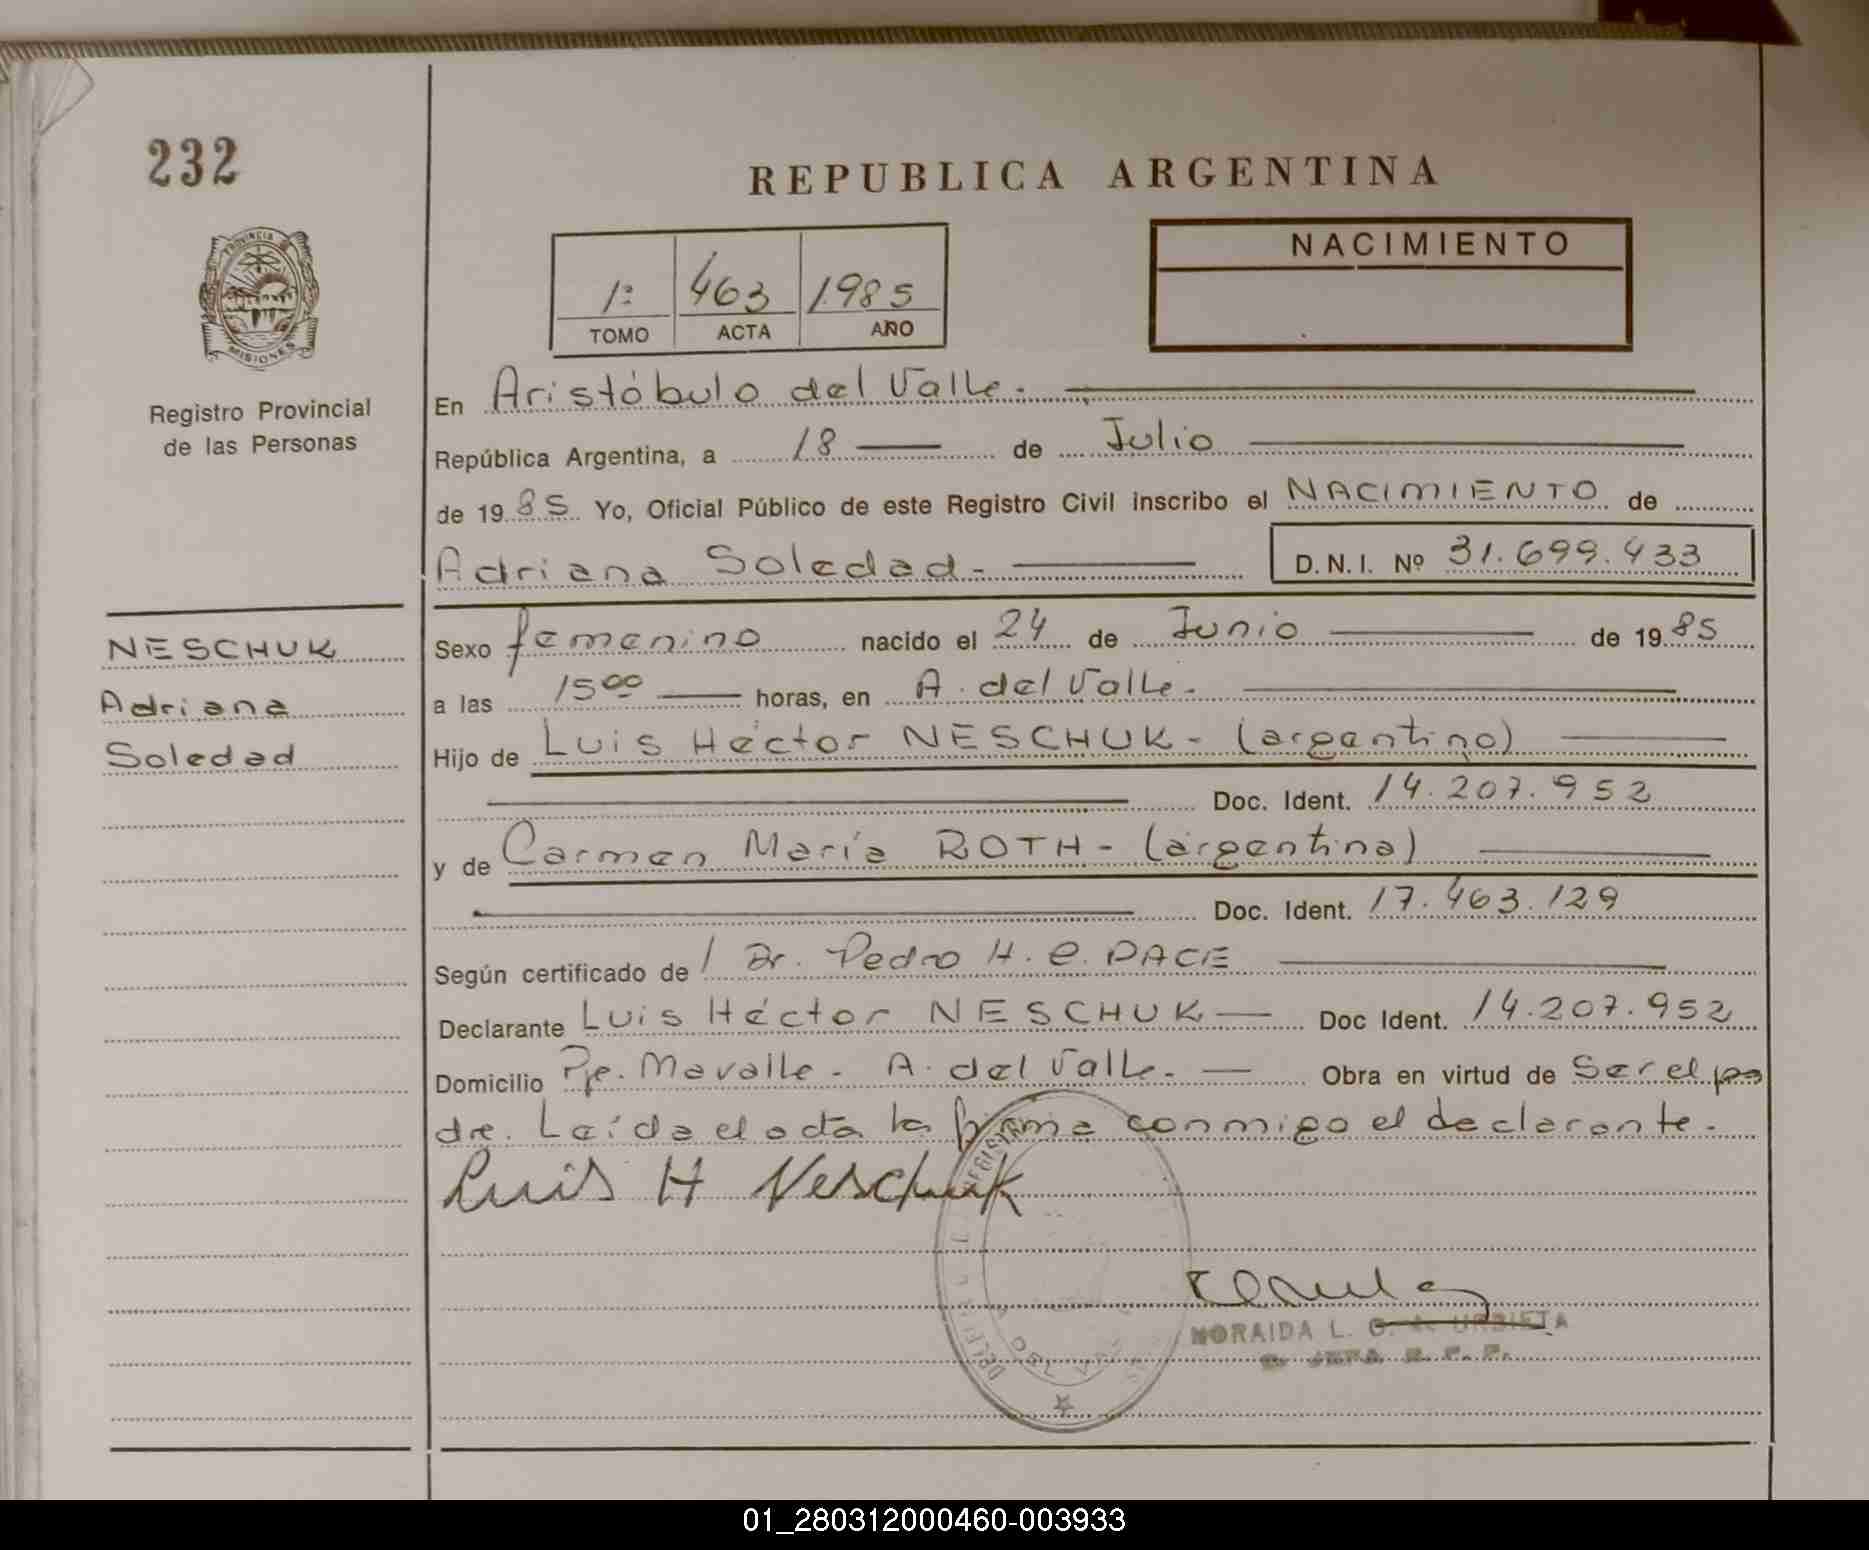 232
REPUBLICA ARGENTINA
PROVINCIA
MISIONES
1º 463 1985
TOMO ACTA AÑO
NACIMIENTO
Registro Provincial
de las Personas
En Aristóbulo del Valle.
República Argentina, a 18 de Julio
de 1985 Yo, Oficial Público de este Registro Civil inscribo el NACIMIENTO de
Adriana Soledad- D.N.I. Nº 31.699.433
NESCHUK
Adriana
Soledad
Sexo femenino nacido el 24 de Junio de 1985
a las 15 00 horas, en A. del Valle-
Hijo de Luis Héctor NESCHUK- (argentino)
Doc. Ident. 14.207.952
y de Carmen María ROTH- (argentina)
Doc. Ident. 17.463.129
Según certificado de / Dr. Pedro H. C. PACE
Declarante Luis Héctor NESCHUK Doc Ident. 14.207.952
Domicilio Pje. Mavalle- A. del Valle- Obra en virtud de Ser el pa
dre. Leída el acta la firma conmigo el declarante.
Luis H Neschuk
NORAIDA L. G. URBIETA
JEFA
01_280312000460-003933